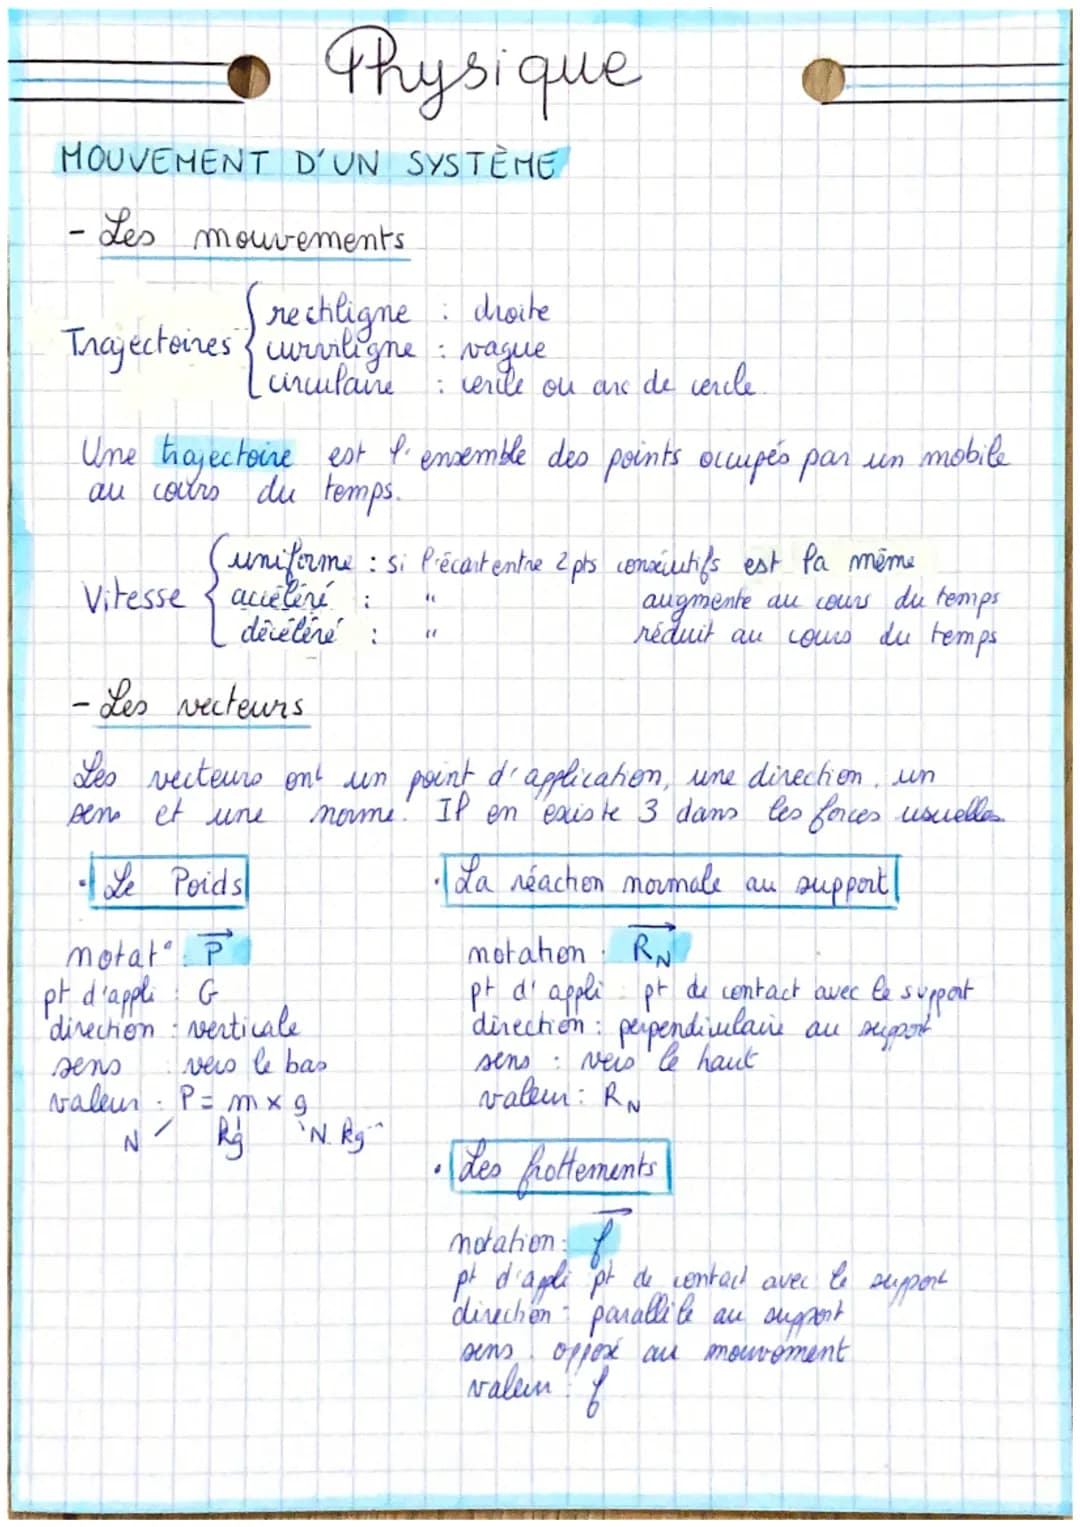 Physique
MOUVEMENT D'UN SYSTÈME
- Les mouvements
Trajectoires { rectiligne : droite
curviligne : vague
circulaire : cercle ou arc de cercle.
Une trajectoire est l'ensemble des points occupés par un mobile
au cours du temps.
Vitesse { uniforme : si l'écart entre 2 pts consécutifs est la même
accéléré : " augmente au cours du temps
décéléré : " réduit au cours du temps
- Les vecteurs
Les vecteurs ont un point d'application, une direction, un
sens et une norme. Il en existe 3 dans les forces usuelles.
• Le Poids
notat° : P⃗
pt d'appli : G
direction : verticale
sens : vers le bas
valeur : P = m x g
N kg N.kg⁻¹
• La réaction normale au support
notation : R⃗N
pt d'appli : pt de contact avec le support
direction : perpendiculaire au support
sens : vers le haut
valeur : RN
• Les frottements
notation : f⃗
pt d'appli pt de contact avec le support
direction : parallèle au support
sens : opposé au mouvement
valeur : f